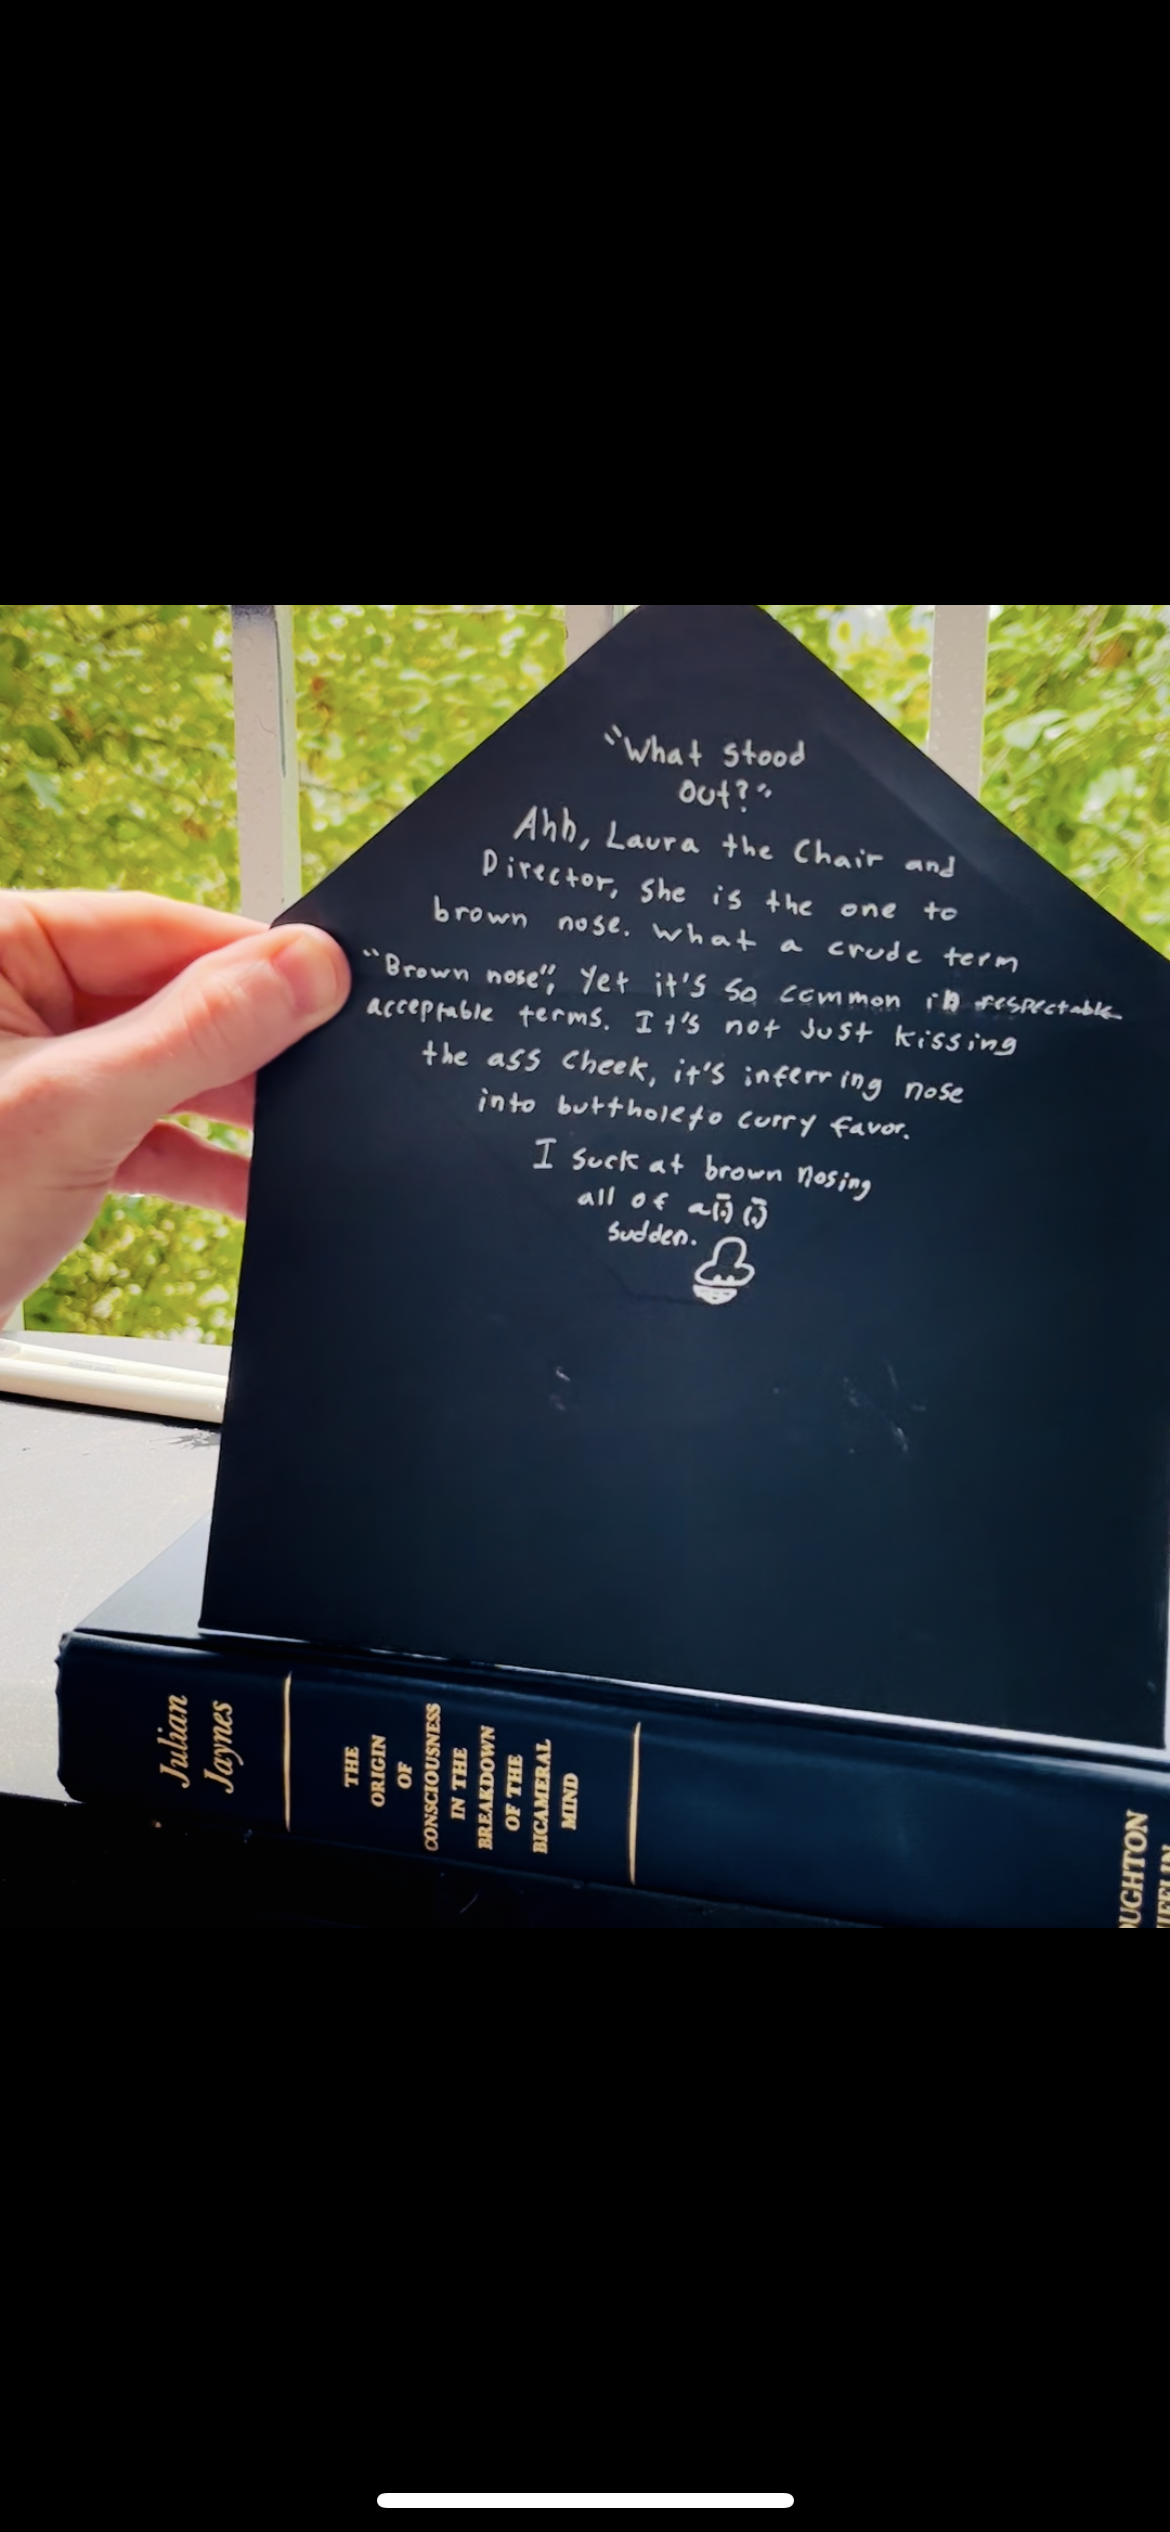 "What stood
out?"
Ahh, Laura the Chair and
Director, she is the one to
brown nose. What a crude term
"Brown nose", yet it's so common in respectable
acceptable terms. It's not just kissing
the ass cheek, it's inferring nose
into butthole to curry favor.
I suck at brown nosing
all of a
sudden.
Julian
Jaynes
THE
ORIGIN
OF
CONSCIOUSNESS
IN THE
BREAKDOWN
OF THE
BICAMERAL
MIND
OUGHTON